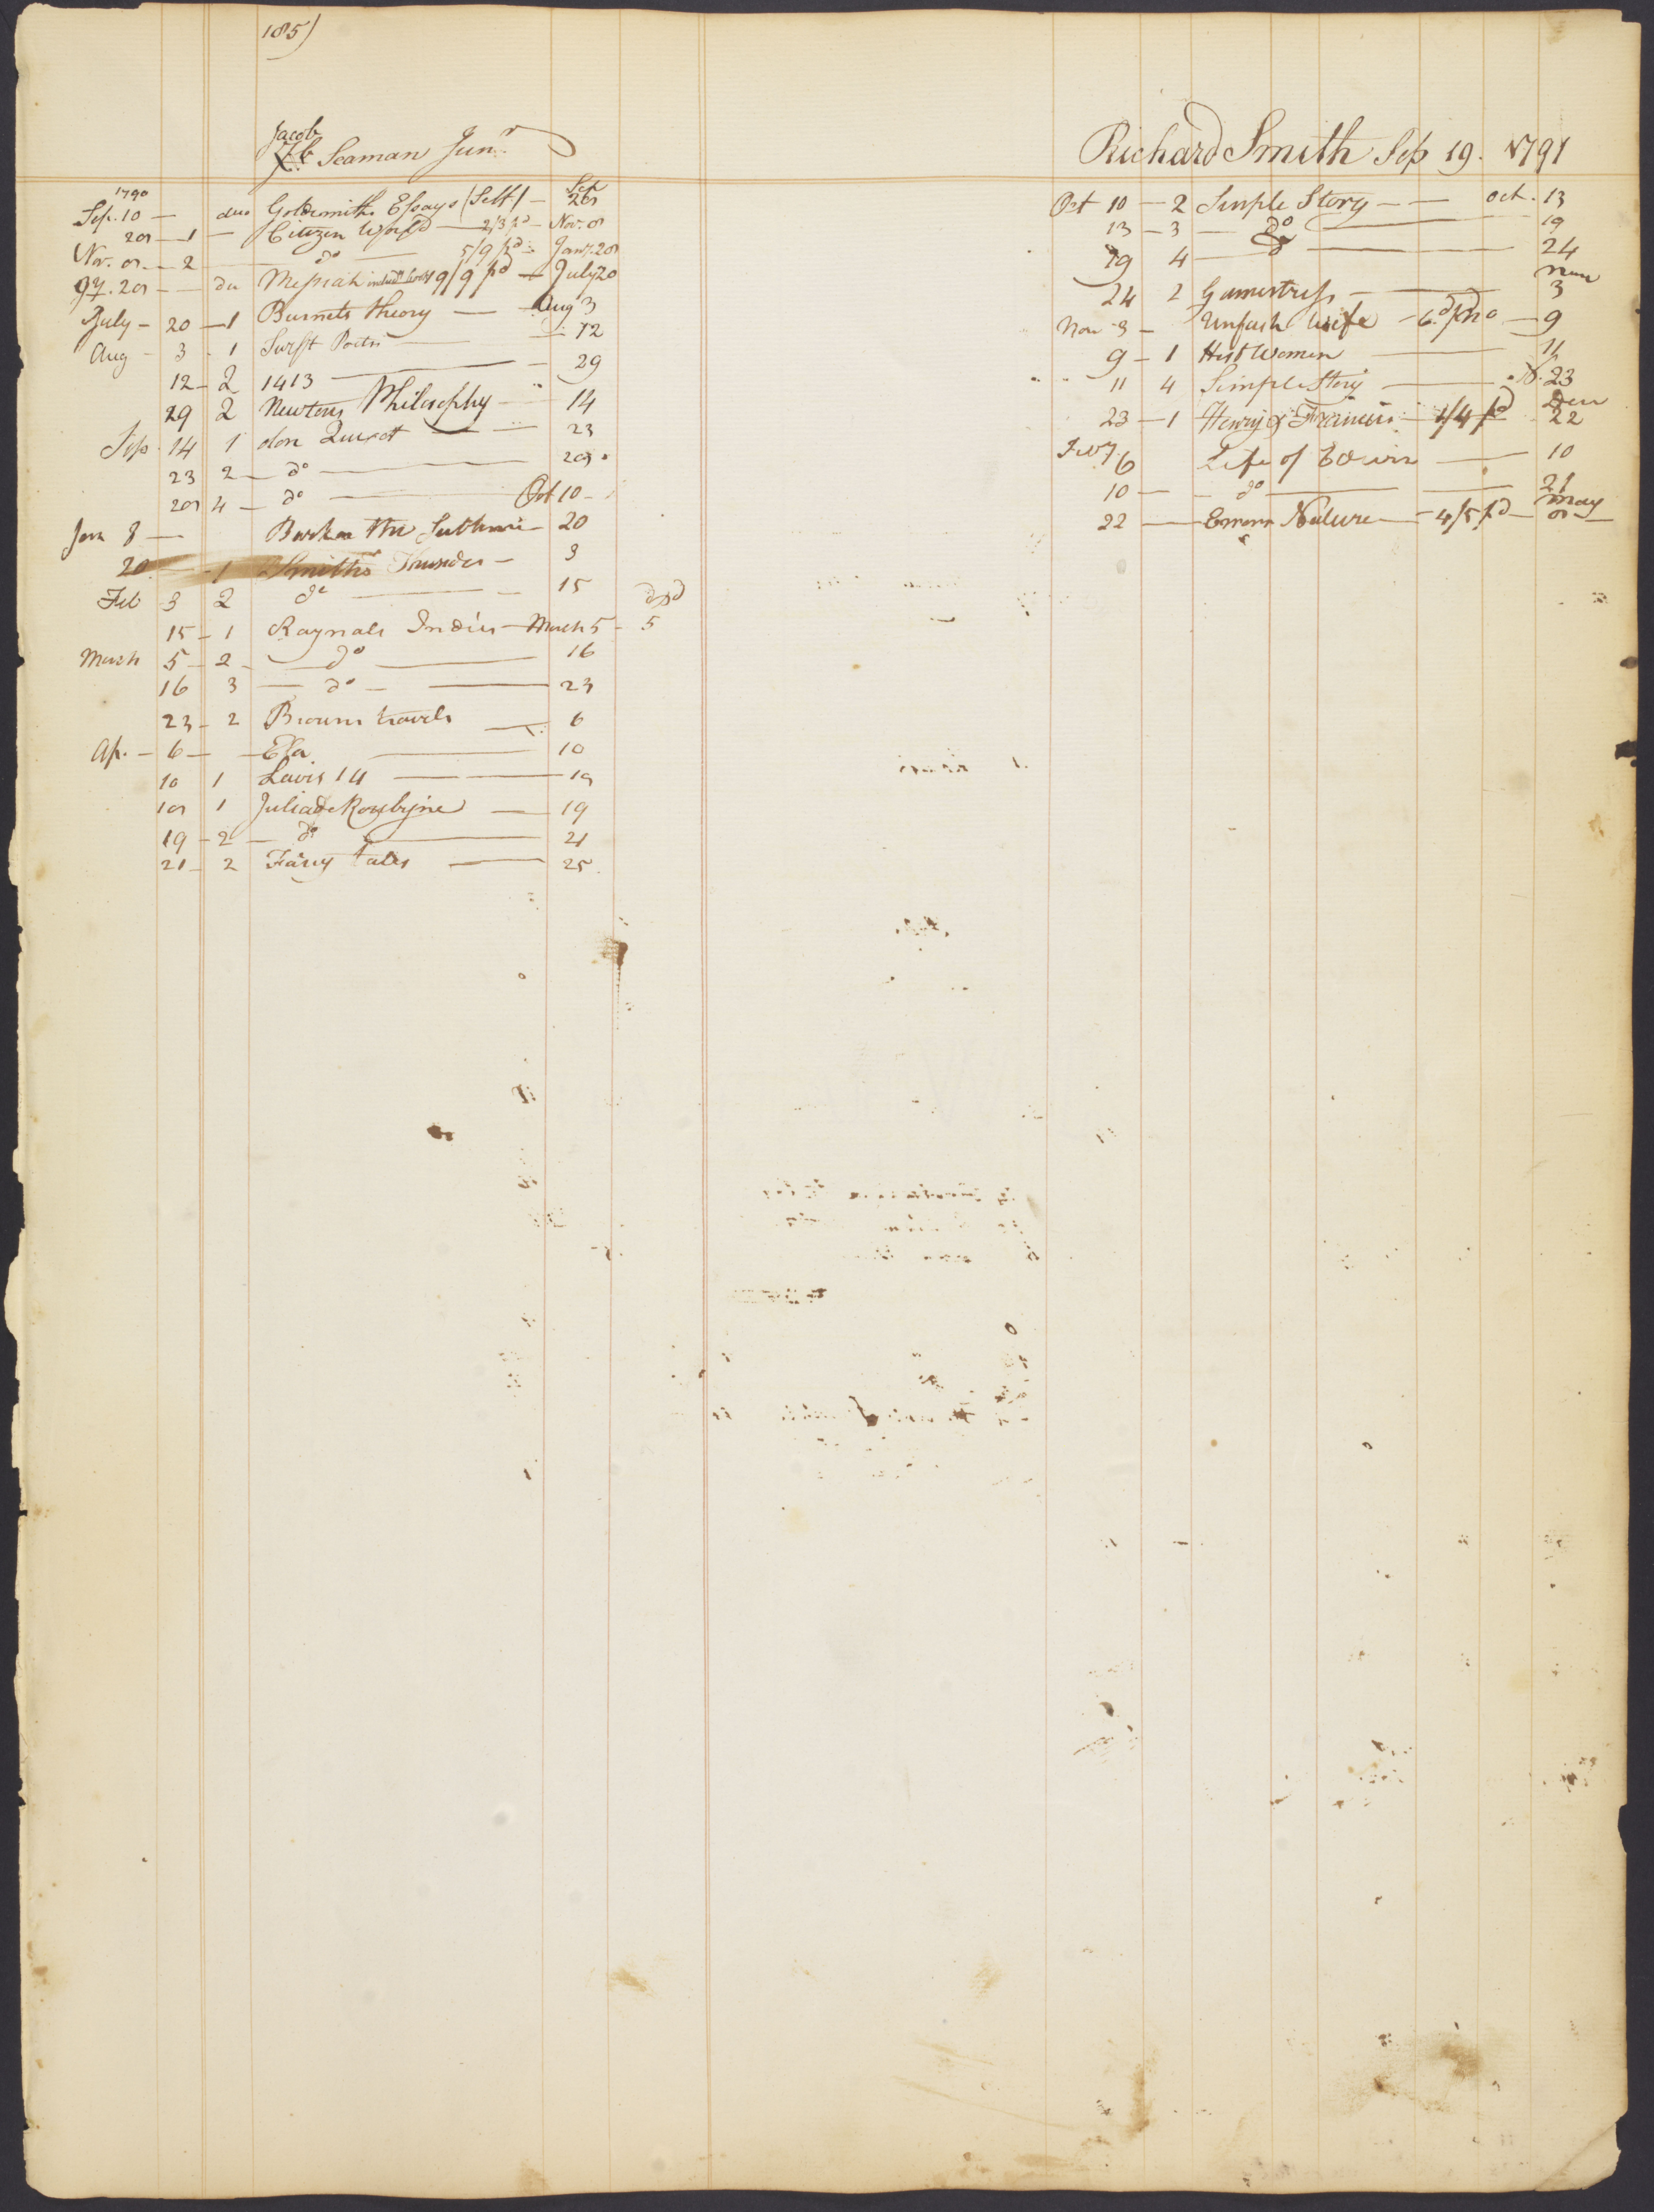 185)
Jacob
Seaman Junr.
1790 Sep
Sep. 10 — duo Goldsmiths Essays (Self) — 28
28 — 1 — Citizen World — 2/3 pd — Nov. 8
Nov. 8 — 2 — do — 5/9 pd — Jany. 28
Jy. 28 — — du Messiah 9/9 pd — July 20
July — 20 — 1 Burnets theory — Aug 3
Aug — 3 - 1 Swift Poetry — 12
12 - 2 1413 — 29
29 2 Newtons Philosophy — 14
Sep. 14 1 don Quixot — 23
23 2 — do — 28
28 4 — do — Oct 10
Jan 8 — 20
20 — 1 Smiths Thunder — 3
Feb 3 2 do — 15 dpd
15 - 1 Raynals Indies — March 5 - 5
March 5 - 2 - do — 16
16 3 — do — 23
23 - 2 Browns travels — 6
Ap. — 6 — — Ela — 10
10 1 Lewis 14 — 18
18 1 Julia de Roubigne — 19
19 - 2 — do — 21
21 - 2 Fairy tales — 25
Richard Smith Sep 19. 1791
Oct 10 — 2 Simple Story — — Oct. 13
13 — 3 — do — 19
19 4 — do — 24
24 2 Gamestress — Nov 3
Nov 3 — Unfash wife — 6d — 9
9 — 1 Hist Women — 11
11 4 Simple Story — 23
23 — 1 Henry & Francis — 1/4 pd Dec 22
Feby 6 Life of Edwin — 10
10 — — do — 21
22 — Emma Nature — 4/5 pd — May 8 —